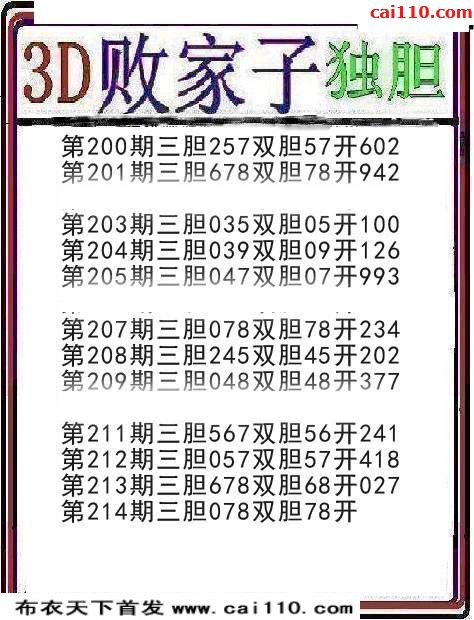 cai110.com
3D败家子独胆
第200期三胆257双胆57开602
第201期三胆678双胆78开942
第203期三胆035双胆05开100
第204期三胆039双胆09开126
第205期三胆047双胆07开993
第207期三胆078双胆78开234
第208期三胆245双胆45开202
第209期三胆048双胆48开377
第211期三胆567双胆56开241
第212期三胆057双胆57开418
第213期三胆678双胆68开027
第214期三胆078双胆78开
布衣天下首发 www.cai110.com